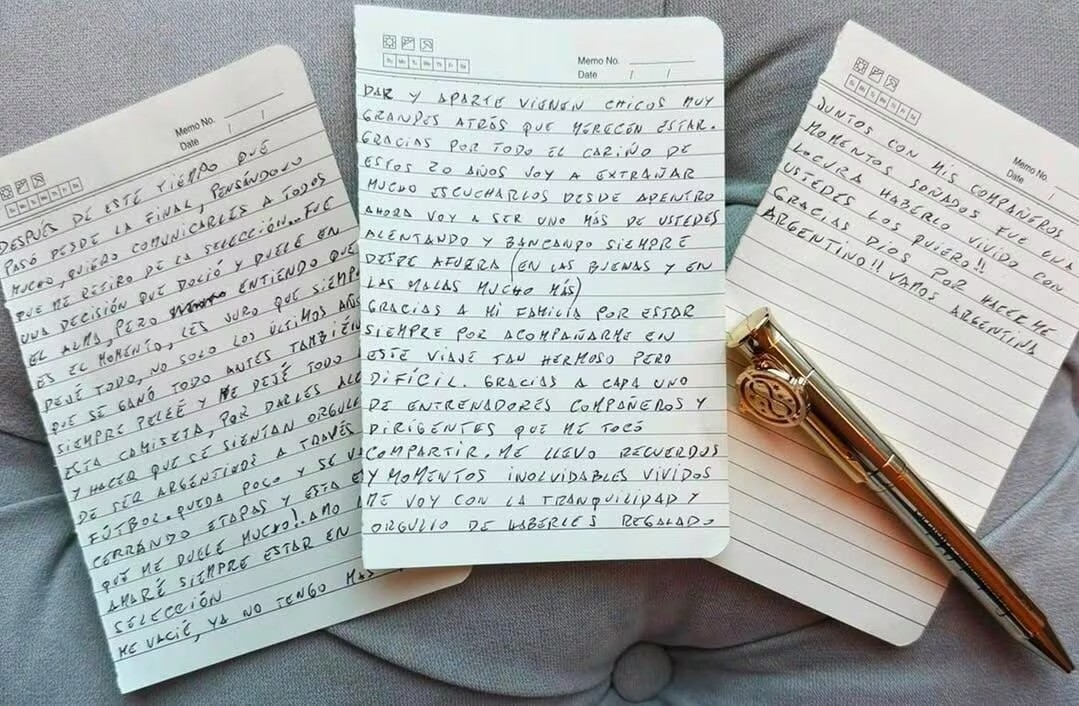 Memo No.
Date / /
Su Mo Tu We Th Fr Sa
DESPUÉS DE ESTE TIEMPO QUE
PASÓ DESDE LA FINAL, PENSÁNDOLO
MUCHO, QUIERO COMUNICARLES A TODOS
QUE ME RETIRO DE LA SELECCIÓN... FUE
UNA DECISIÓN QUE DOLIÓ Y DUELE EN
EL ALMA, PERO ENTIENDO QUE
ES EL MOMENTO, LES JURO QUE SIEMP
DEJÉ TODO, NO SOLO LOS ÚLTIMOS AÑOS
QUE SE GANÓ TODO ANTES TAMBIÉN
SIEMPRE PELEÉ Y ME DEJÉ TODO
ESTA CAMISETA, POR DARLES ALE
Y HACER QUE SE SIENTAN ORGULL
DE SER ARGENTINOS A TRAVÉS
FÚTBOL. QUEDA POCO Y SE VA
CERRANDO ETAPAS Y ESTA E
QUE ME DUELE MUCHO!. AMO
AMARÉ SIEMPRE ESTAR EN
SELECCIÓN
ME VACIÉ, YA NO TENGO MAS
Memo No.
Date / /
Su Mo Tu We Th Fr Sa
DAR Y APARTE VIENEN CHICOS MUY
GRANDES ATRÁS QUE MERECEN ESTAR.
GRACIAS POR TODO EL CARIÑO DE
ESTOS 20 AÑOS VOY A EXTRAÑAR
MUCHO ESCUCHARLOS DESDE ADENTRO
AHORA VOY A SER UNO MÁS DE USTEDES
ALENTANDO Y BANCANDO SIEMPRE
DESDE AFUERA (EN LAS BUENAS Y EN
LAS MALAS MUCHO MÁS)
GRACIAS A MI FAMILIA POR ESTAR
SIEMPRE POR ACOMPAÑARME EN
ESTE VIAJE TAN HERMOSO PERO
DIFÍCIL. GRACIAS A CADA UNO
DE ENTRENADORES COMPAÑEROS Y
DIRIGENTES QUE ME TOCÓ
COMPARTIR. ME LLEVO RECUERDOS
Y MOMENTOS INOLVIDABLES VIVIDOS
ME VOY CON LA TRANQUILIDAD Y
ORGULLO DE HABERLES REGALADO
Memo No.
Date /
Su Mo Tu We Th Fr Sa
JUNTOS CON MIS COMPAÑEROS
MOMENTOS SOÑADOS FUE UNA
LOCURA HABERLO VIVIDO CON
USTEDES LOS QUIERO!!
GRACIAS DIOS POR HACERME
ARGENTINO!! VAMOS ARGENTINA